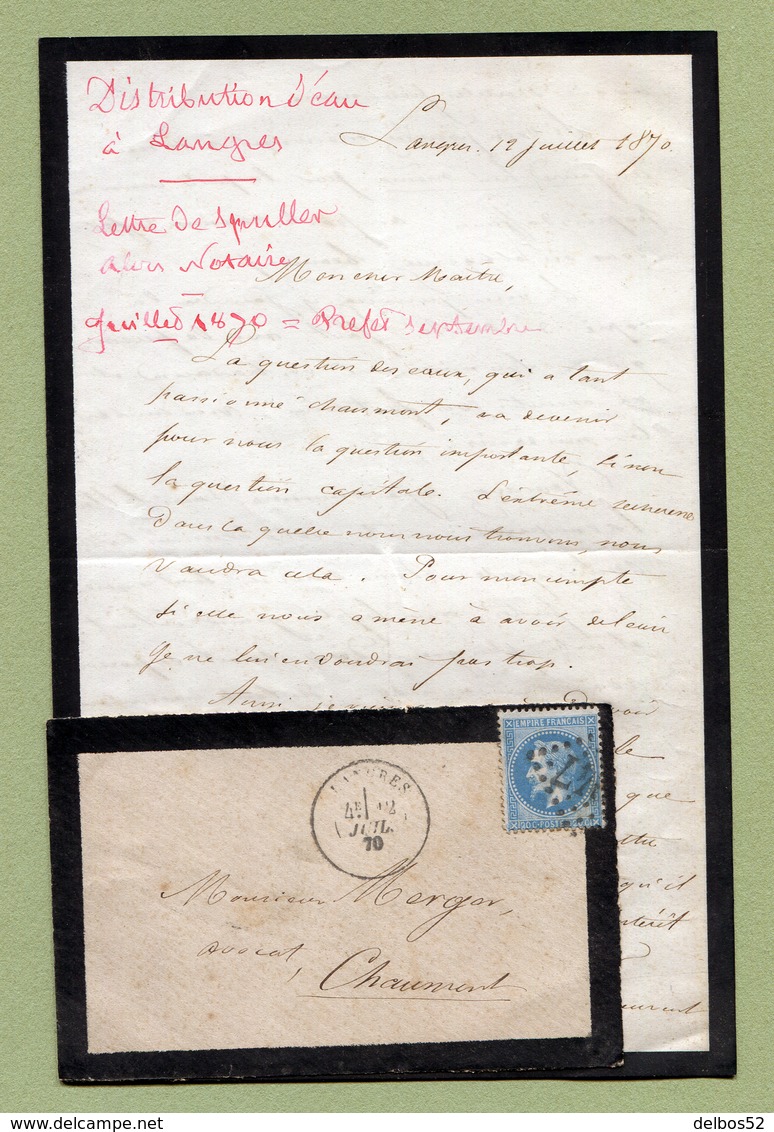 Distribution d'eau
à Langres
Lettre de Spuller
alors Notaire
Juillet 1870 = Préfet Septembre
Langres. 12 juillet 1870.
Mon cher Maître,
La question des eaux, qui a tant
passionné Chaumont, va devenir
pour nous la question importante, sinon
la question capitale. L'extrême secheresse
dans la quelle nous nous trouvons, nous
vaudra cela. Pour mon compte
si elle nous amène à avoir de l'eau
je ne lui en voudrai pas trop.
Aussi je
que
qu'il
intérêt
EMPIRE FRANÇAIS
20 C POSTES 20 C
LANGRES
4E 12
JUIL.
70
Monsieur Merger,
avocat,
Chaumont
delbos52